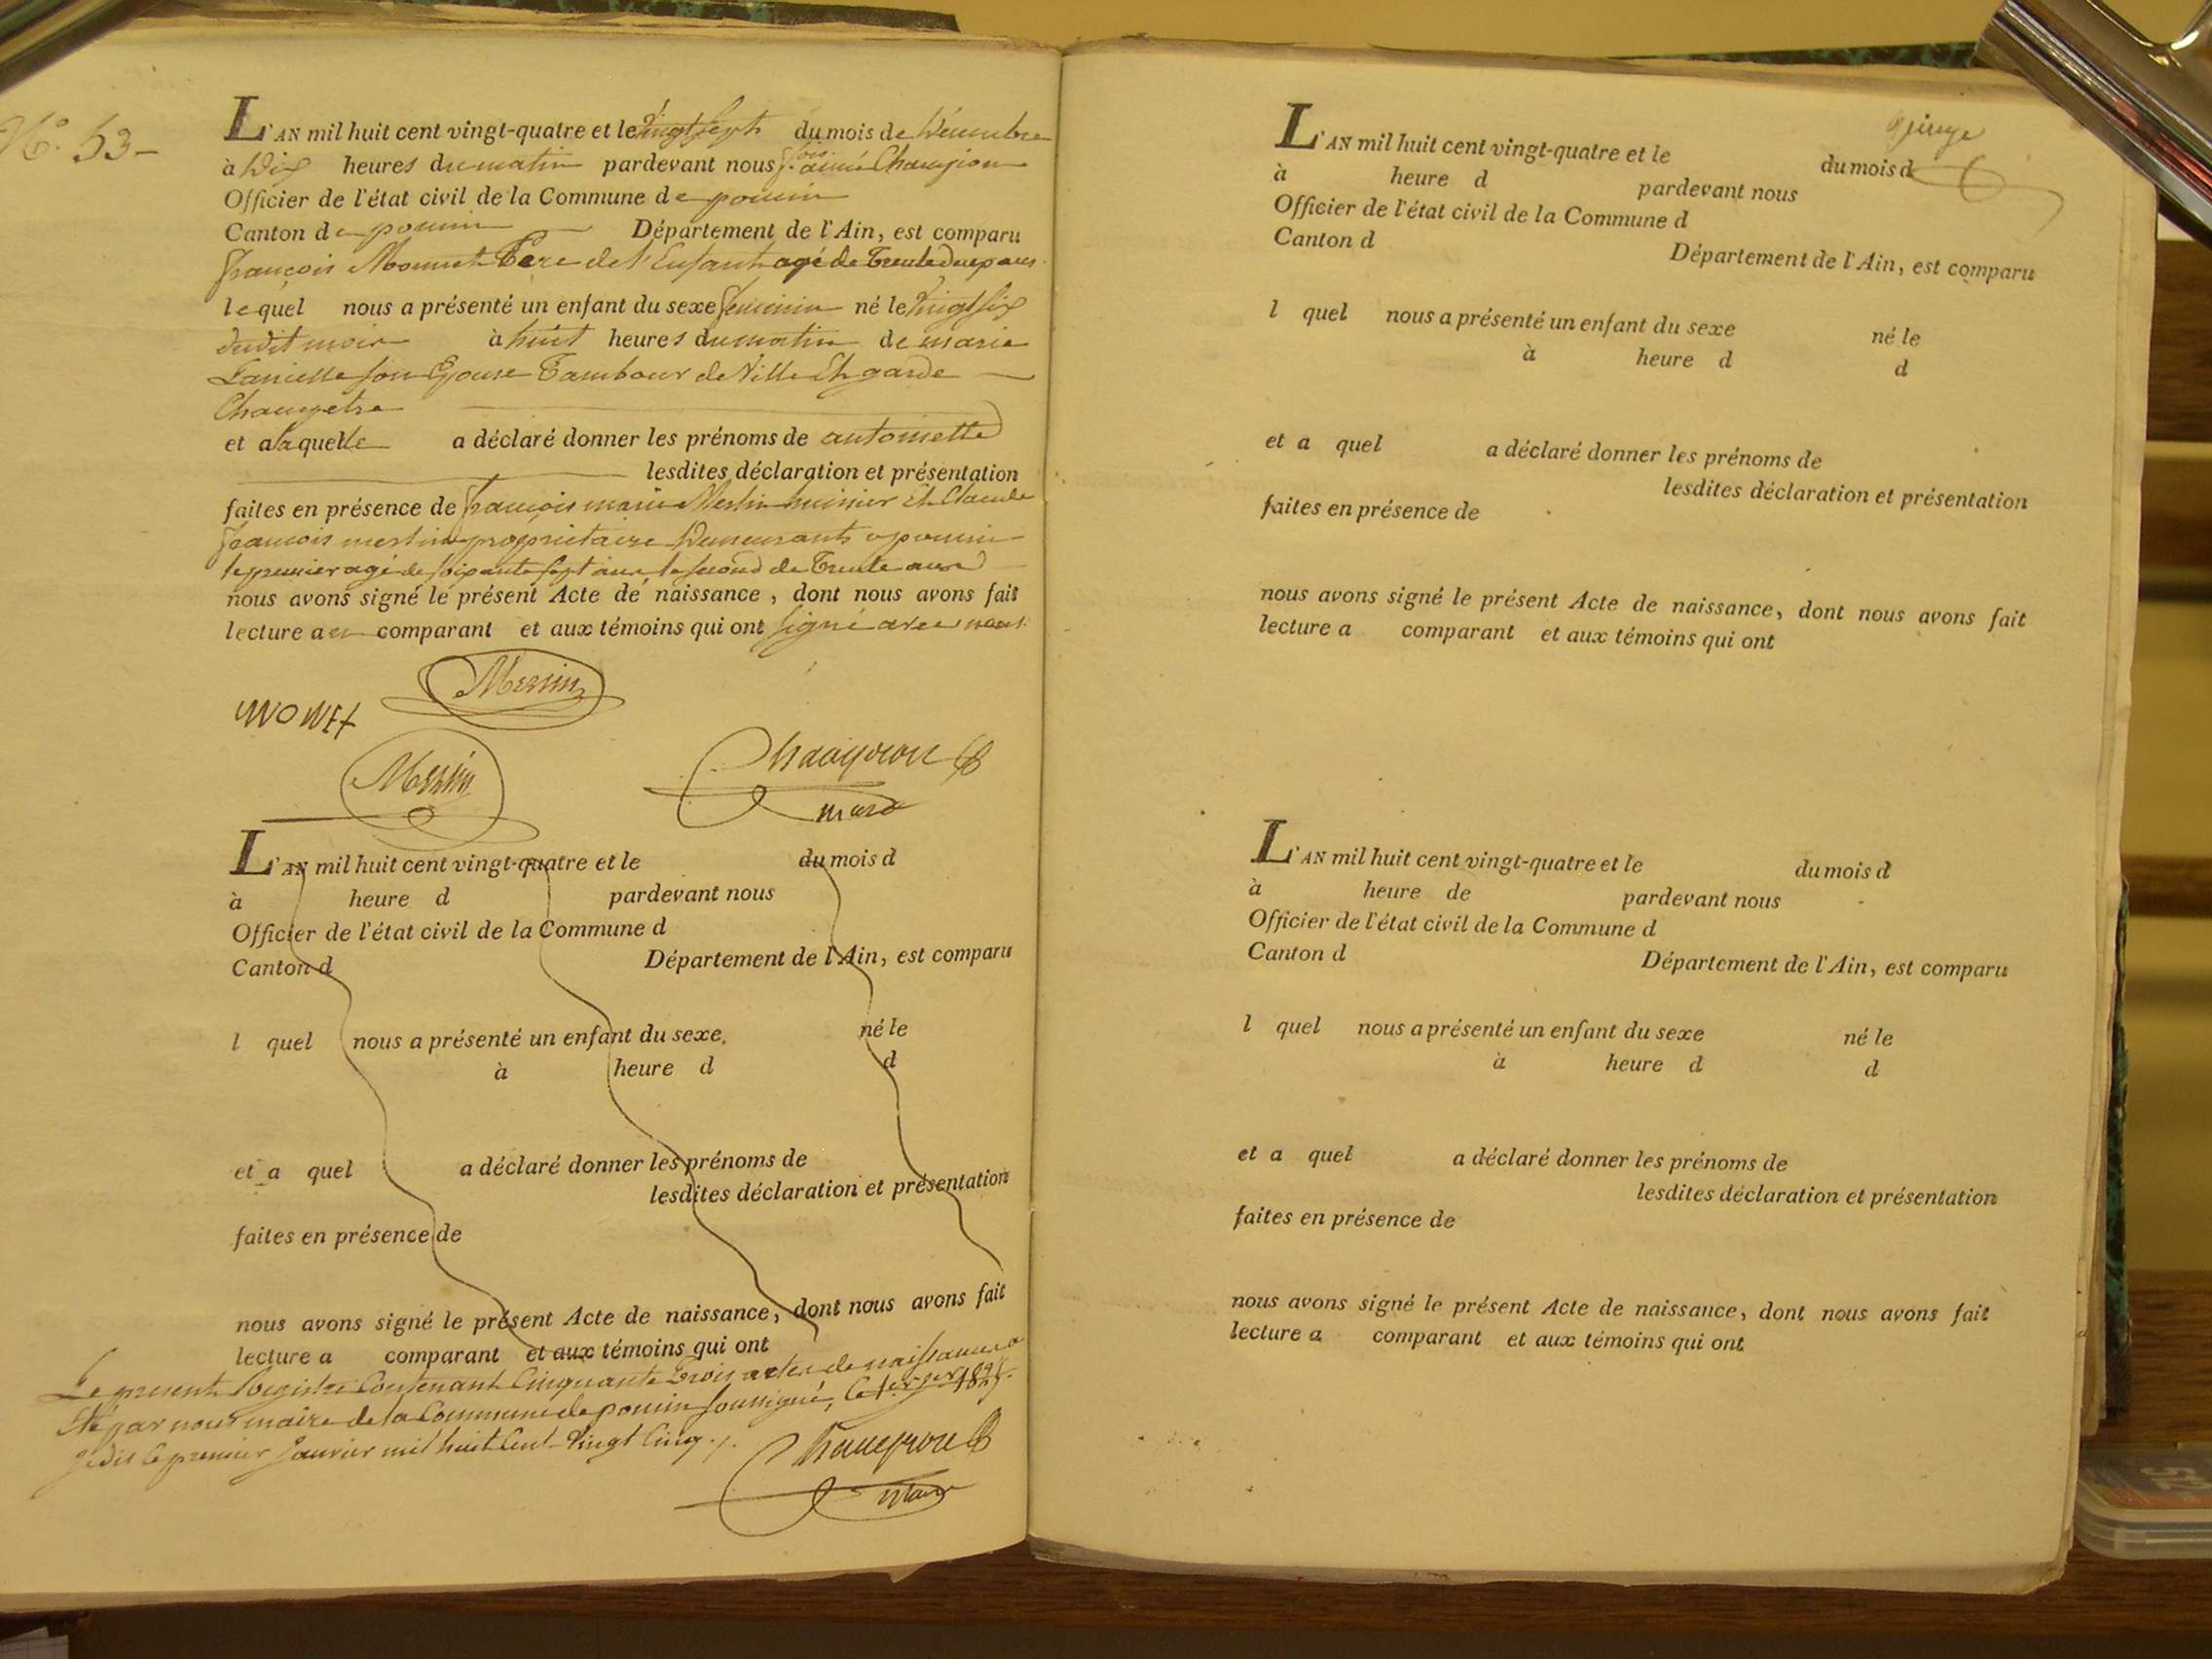 N.º 53 -
L'AN mil huit cent vingt-quatre et le vingt sept du mois de Décembre
à Dix heures du matin pardevant nous f.ois aimé Champion
Officier de l'état civil de la Commune de poncin
Canton de poncin Département de l'Ain, est comparu
françois Monnet Père de l'Enfant agé de Trente Deux ans
lequel nous a présenté un enfant du sexe feminin né le vingt six
dudit mois à huit heures du matin de marie
son Epouse Tambour de Ville Et garde
Champetre
et a laquelle a déclaré donner les prénoms de antoinette
lesdites déclaration et présentation
faites en présence de françois marie Mersin huissier Et Claude
francois mersin proprietaire Demeurants a poncin
le premier agé de soixante sept ans, le second de Trente ans
nous avons signé le présent Acte de naissance, dont nous avons fait
lecture au comparant et aux témoins qui ont signé avec nous.
Mersin
MONET
Mersin
Champion
maire
L'AN mil huit cent vingt-quatre et le du mois d
à heure d pardevant nous
Officier de l'état civil de la Commune d
Canton d Département de l'Ain, est comparu
l quel nous a présenté un enfant du sexe né le
à heure d d
et a quel a déclaré donner les prénoms de
lesdites déclaration et présentation
faites en présence de
nous avons signé le présent Acte de naissance, dont nous avons fait
lecture a comparant et aux témoins qui ont
Le present Registre Contenant Cinquante Trois actes de naissance a
Eté par nous maire de la Commune de poncin soussigné, Ce 1825.
je dis Ce premier Janvier mil huit Cent Vingt Cinq ./.
Champion
maire
L'AN mil huit cent vingt-quatre et le du mois d
à heure d pardevant nous
Officier de l'état civil de la Commune d
Canton d Département de l'Ain, est comparu
l quel nous a présenté un enfant du sexe né le
à heure d d
et a quel a déclaré donner les prénoms de
lesdites déclaration et présentation
faites en présence de
nous avons signé le présent Acte de naissance, dont nous avons fait
lecture a comparant et aux témoins qui ont
L'AN mil huit cent vingt-quatre et le du mois d
à heure de pardevant nous
Officier de l'état civil de la Commune d
Canton d Département de l'Ain, est comparu
l quel nous a présenté un enfant du sexe né le
à heure d d
et a quel a déclaré donner les prénoms de
lesdites déclaration et présentation
faites en présence de
nous avons signé le présent Acte de naissance, dont nous avons fait
lecture a comparant et aux témoins qui ont